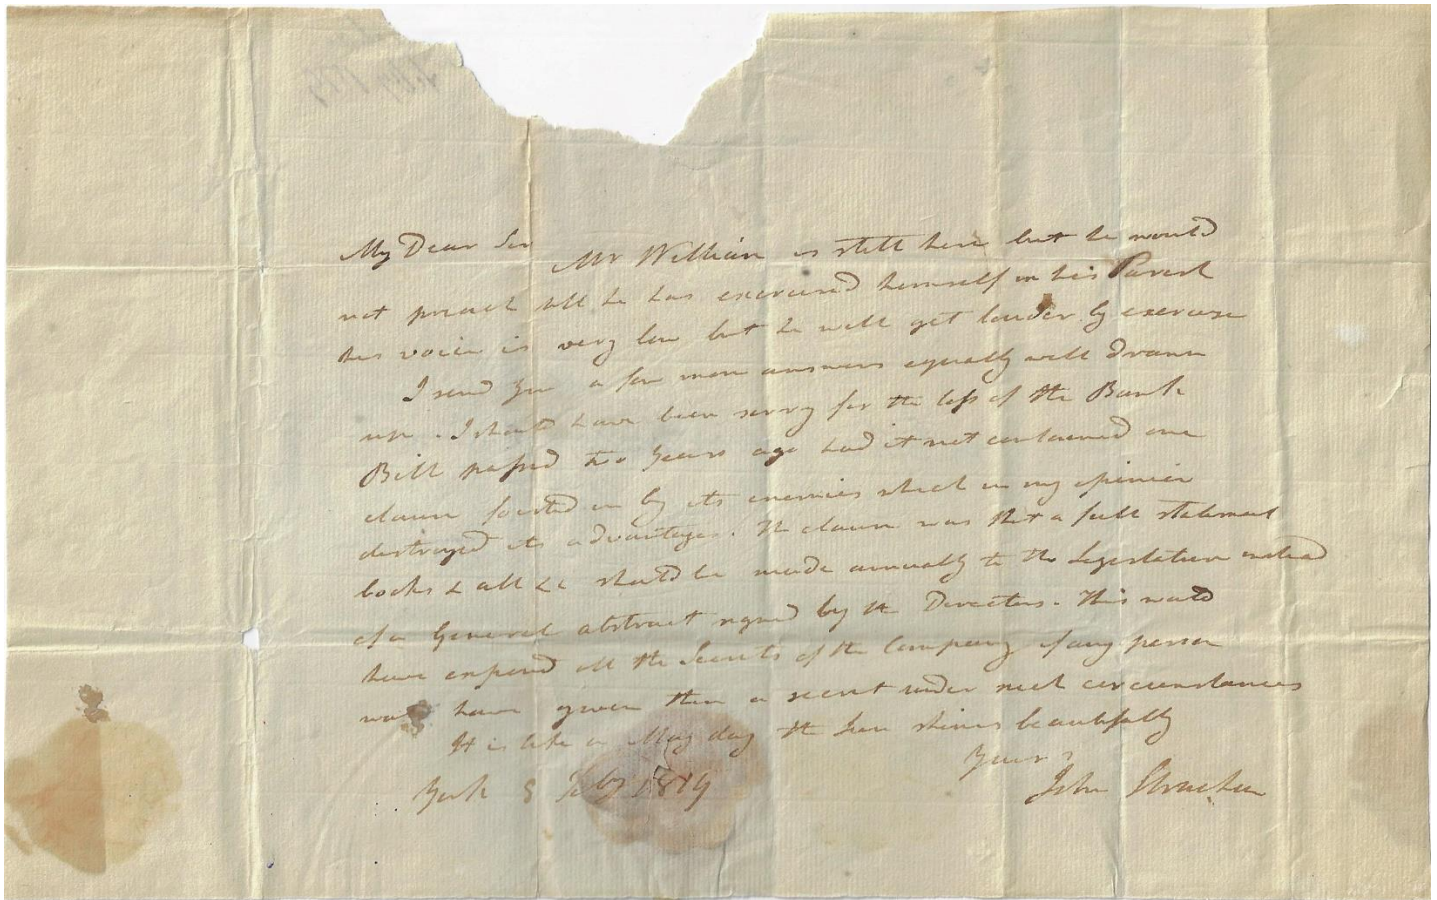 My Dear Sir Mr William is still here but he would
not preach till he has exercised himself in his Parish
his voice is very low but he will get louder by exercise
I send you a few more answers equally well drawn
up. I should have been sorry for the loss of the Bank
Bill passed two years ago had it not contained one
clause foisted in by its enemies which in my opinion
destroyed its advantages. The clause was that a full statement
books & all &c should be made annually to the Legislature instead
of a General abstract signed by the Directors. This would
have exposed all the Secrets of the Company if any person
would have given them a secret under such circumstances
It is like a May day the Sun shines beautifully
Yours
York 8 Feby 1819 John Strachan